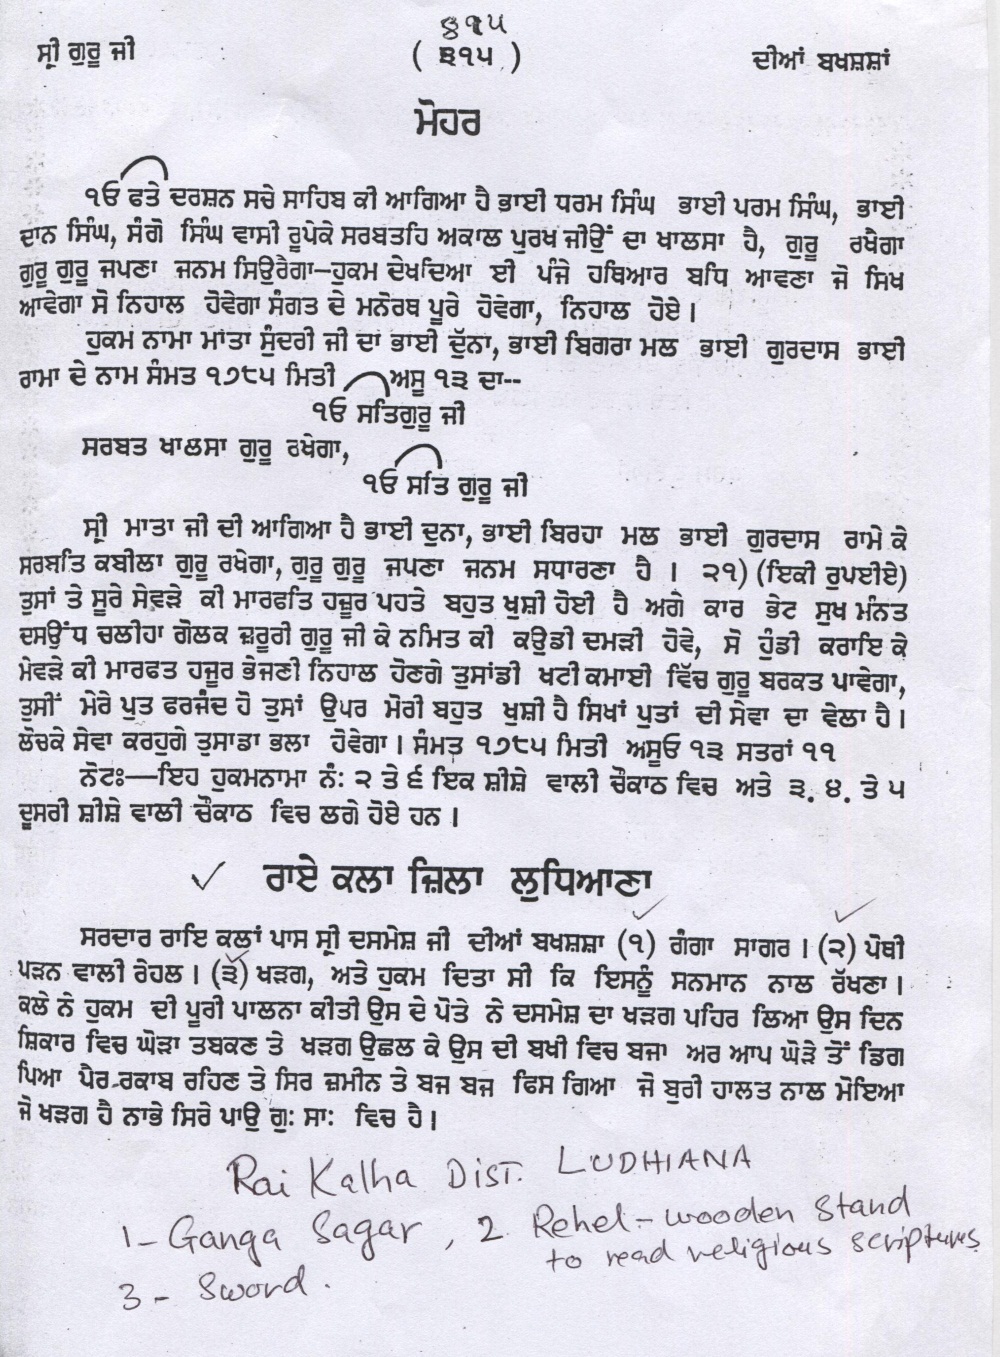 ੪੧੫
ਸ੍ਰੀ ਗੁਰੂ ਜੀ ( ੩੧੫ ) ਦੀਆਂ ਬਖਸ਼ਸ਼ਾਂ
ਮੋਹਰ
੧ਓ ਫਤੇ ਦਰਸ਼ਨ ਸਚੇ ਸਾਹਿਬ ਕੀ ਆਗਿਆ ਹੈ ਭਾਈ ਧਰਮ ਸਿੰਘ ਭਾਈ ਪਰਮ ਸਿੰਘ, ਭਾਈ
ਦਾਨ ਸਿੰਘ, ਸੰਗੋ ਸਿੰਘ ਵਾਸੀ ਰੂਪੇਕੇ ਸਰਬਤਹਿ ਅਕਾਲ ਪੁਰਖ ਜੀਉਂ ਦਾ ਖਾਲਸਾ ਹੈ, ਗੁਰੂ ਰਖੈਗਾ
ਗੁਰੂ ਗੁਰੂ ਜਪਣਾ ਜਨਮ ਸਿਉਰੈਗਾ—ਹੁਕਮ ਦੇਖਦਿਆ ਈ ਪੰਜੇ ਹਥਿਆਰ ਬਧਿ ਆਵਣਾ ਜੋ ਸਿਖ
ਆਵੇਗਾ ਸੋ ਨਿਹਾਲ ਹੋਵੇਗਾ ਸੰਗਤ ਦੇ ਮਨੋਰਥ ਪੂਰੇ ਹੋਵੇਗਾ, ਨਿਹਾਲ ਹੋਏ।
ਹੁਕਮ ਨਾਮਾ ਮਾਤਾ ਸੁੰਦਰੀ ਜੀ ਦਾ ਭਾਈ ਦੁੱਨਾ, ਭਾਈ ਬਿਗਰਾ ਮਲ ਭਾਈ ਗੁਰਦਾਸ ਭਾਈ
ਰਾਮਾ ਦੇ ਨਾਮ ਸੰਮਤ ੧੭੮੫ ਮਿਤੀ ਅਸੂ ੧੩ ਦਾ--
੧ਓ ਸਤਿਗੁਰੂ ਜੀ
ਸਰਬਤ ਖਾਲਸਾ ਗੁਰੂ ਰਖੇਗਾ,
੧ਓ ਸਤਿ ਗੁਰੂ ਜੀ
ਸ੍ਰੀ ਮਾਤਾ ਜੀ ਦੀ ਆਗਿਆ ਹੈ ਭਾਈ ਦੁਨਾ, ਭਾਈ ਬਿਰਹਾ ਮਲ ਭਾਈ ਗੁਰਦਾਸ ਰਾਮੇ ਕੇ
ਸਰਬਤਿ ਕਬੀਲਾ ਗੁਰੂ ਰਖੇਗਾ, ਗੁਰੂ ਗੁਰੂ ਜਪਣਾ ਜਨਮ ਸਧਾਰਣਾ ਹੈ । ੨੧) (ਇਕੀ ਰੁਪਈਏ)
ਤੁਸਾਂ ਤੇ ਸੂਰੇ ਸੇਵੜੇ ਕੀ ਮਾਰਫਤਿ ਹਜ਼ੂਰ ਪਹਤੇ ਬਹੁਤ ਖੁਸ਼ੀ ਹੋਈ ਹੈ ਅਗੇ ਕਾਰ ਭੇਟ ਸੁਖ ਮੰਨਤ
ਦਸਉਂਧ ਚਲੀਹਾ ਗੋਲਕ ਜ਼ਰੂਰੀ ਗੁਰੂ ਜੀ ਕੇ ਨਮਿਤ ਕੀ ਕਉਡੀ ਦਮੜੀ ਹੋਵੇ, ਸੋ ਹੁੰਡੀ ਕਰਾਇ ਕੇ
ਮੇਵੜੇ ਕੀ ਮਾਰਫਤ ਹਜੂਰ ਭੇਜਣੀ ਨਿਹਾਲ ਹੋਣਗੇ ਤੁਸਾਂਡੀ ਖਟੀ ਕਮਾਈ ਵਿੱਚ ਗੁਰੂ ਬਰਕਤ ਪਾਵੇਗਾ,
ਤੁਸੀਂ ਮੇਰੇ ਪੁਤ ਫਰਜੰਦ ਹੋ ਤੁਸਾਂ ਉਪਰ ਮੋਰੀ ਬਹੁਤ ਖੁਸ਼ੀ ਹੈ ਸਿਖਾਂ ਪੁਤਾਂ ਦੀ ਸੇਵਾ ਦਾ ਵੇਲਾ ਹੈ।
ਲੋਚਕੇ ਸੇਵਾ ਕਰਹੁਗੇ ਤੁਸਾਡਾ ਭਲਾ ਹੋਵੇਗਾ। ਸੰਮਤ ੧੭੮੫ ਮਿਤੀ ਅਸੂਓ ੧੩ ਸਤਰਾਂ ੧੧
ਨੋਟਃ—ਇਹ ਹੁਕਮਨਾਮਾ ਨੰ: ੨ ਤੇ ੬ ਇਕ ਸ਼ੀਸ਼ੇ ਵਾਲੀ ਚੌਕਾਠ ਵਿਚ ਅਤੇ ੩. ੪. ਤੇ ੫
ਦੂਸਰੀ ਸ਼ੀਸ਼ੇ ਵਾਲੀ ਚੌਕਾਠ ਵਿਚ ਲਗੇ ਹੋਏ ਹਨ।
ਰਾਏ ਕਲਾ ਜ਼ਿਲਾ ਲੁਧਿਆਣਾ
ਸਰਦਾਰ ਰਾਇ ਕਲਾਂ ਪਾਸ ਸ੍ਰੀ ਦਸਮੇਸ਼ ਜੀ ਦੀਆਂ ਬਖਸ਼ਸ਼ਾ (੧) ਗੰਗਾ ਸਾਗਰ। (੨) ਪੋਥੀ
ਪੜਨ ਵਾਲੀ ਰੇਹਲ। (੩) ਖੜਗ, ਅਤੇ ਹੁਕਮ ਦਿਤਾ ਸੀ ਕਿ ਇਸਨੂੰ ਸਨਮਾਨ ਨਾਲ ਰੱਖਣਾ।
ਕਲੇ ਨੇ ਹੁਕਮ ਦੀ ਪੂਰੀ ਪਾਲਨਾ ਕੀਤੀ ਉਸ ਦੇ ਪੋਤੇ ਨੇ ਦਸਮੇਸ਼ ਦਾ ਖੜਗ ਪਹਿਰ ਲਿਆ ਉਸ ਦਿਨ
ਸ਼ਿਕਾਰ ਵਿਚ ਘੋੜਾ ਤਬਕਣ ਤੇ ਖੜਗ ਉਛਲ ਕੇ ਉਸ ਦੀ ਬਖੀ ਵਿਚ ਬਜਾ ਅਰ ਆਪ ਘੋੜੇ ਤੋਂ ਡਿਗ
ਪਿਆ ਪੈਰ ਰਕਾਬ ਰਹਿਣ ਤੇ ਸਿਰ ਜ਼ਮੀਨ ਤੇ ਬਜ ਬਜ ਫਿਸ ਗਿਆ ਜੋ ਬੁਰੀ ਹਾਲਤ ਨਾਲ ਮੋਇਆ
ਜੋ ਖੜਗ ਹੈ ਨਾਭੇ ਸਿਰੇ ਪਾਉ ਗੁ: ਸਾ: ਵਿਚ ਹੈ।
Rai Kalha DIST. LUDHIANA
1- Ganga Sagar , 2 Rehel - wooden Stand
to read religious scriptures
3 - Sword .